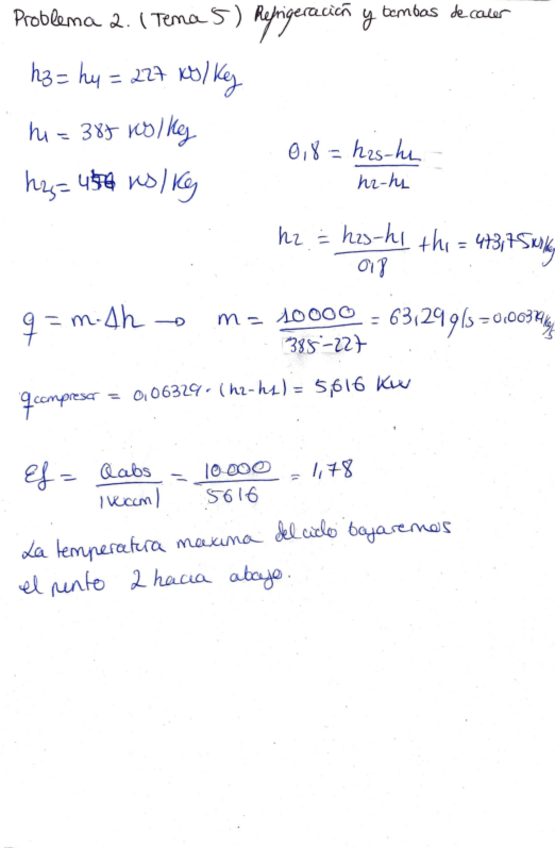 Problema 2. (Tema 5) Refrigeración y bombas de calor
h3 = h4 = 227 kJ/kg
h1 = 385 kJ/kg
h2s = 456 kJ/kg
0,8 = (h2s - h1) / (h2 - h1)
h2 = (h2s - h1) / 0,8 + h1 = 473,75 kJ/kg
q = m · Δh → m = 10000 / (385 - 227) = 63,29 g/s = 0,06329 kg/s
q compresor = 0,06329 · (h2 - h1) = 5,616 Kw
Ef = Qabs / |Wcom| = 10.000 / 5616 = 1,78
La temperatura maxima del ciclo bajaremos
el punto 2 hacia abajo.